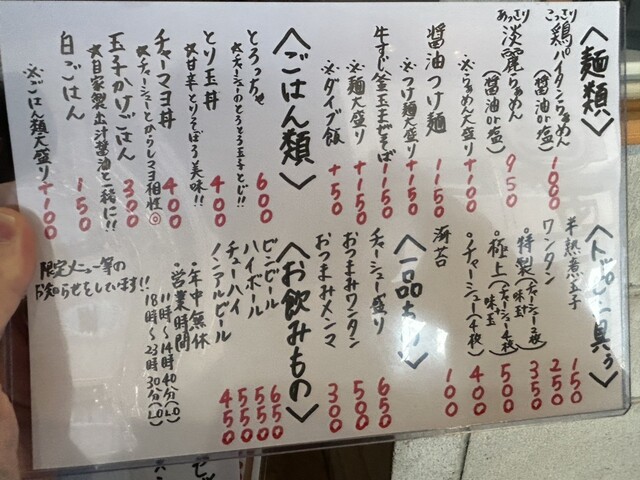 〈麺類〉
こってり
鶏パイタンらぁめん
(醤油or塩) 1000
あっさり
淡麗らぁめん
(醤油or塩) 950
※らぁめん大盛り +100
醤油つけ麺 1150
※つけ麺大盛り +150
牛すじ釜玉まぜそば 1150
※麺大盛り +150
※ダイブ飯 +150
〈ごはん類〉
とろっちゃ 600
★チャーシューのとろとろ玉子とじ!!
とり玉丼 400
★甘辛とりそぼろ美味!!
チャーマヨ丼 400
★チャーシューとからしマヨ相性◎
玉子かけごはん 300
★自家製出汁醤油と一緒に!!
白ごはん 150
※ごはん類大盛り +100
〈トッピング具〉
半熟煮玉子 150
ワンタン 250
特製(チャーシュー2枚 味玉) 350
極上(チャーシュー4枚 味玉) 500
チャーシュー4枚 400
海苔 100
〈一品もの〉
チャーシュー盛り 650
おつまみワンタン 500
おつまみメンマ 300
〈お飲みもの〉
ビンビール 650
ハイボール 550
チューハイ 550
ノンアルビール 450
・年中無休
・営業時間
11時〜14時40分(LO)
18時〜23時30分(LO)
限定メニュー等の
お知らせをしています!!